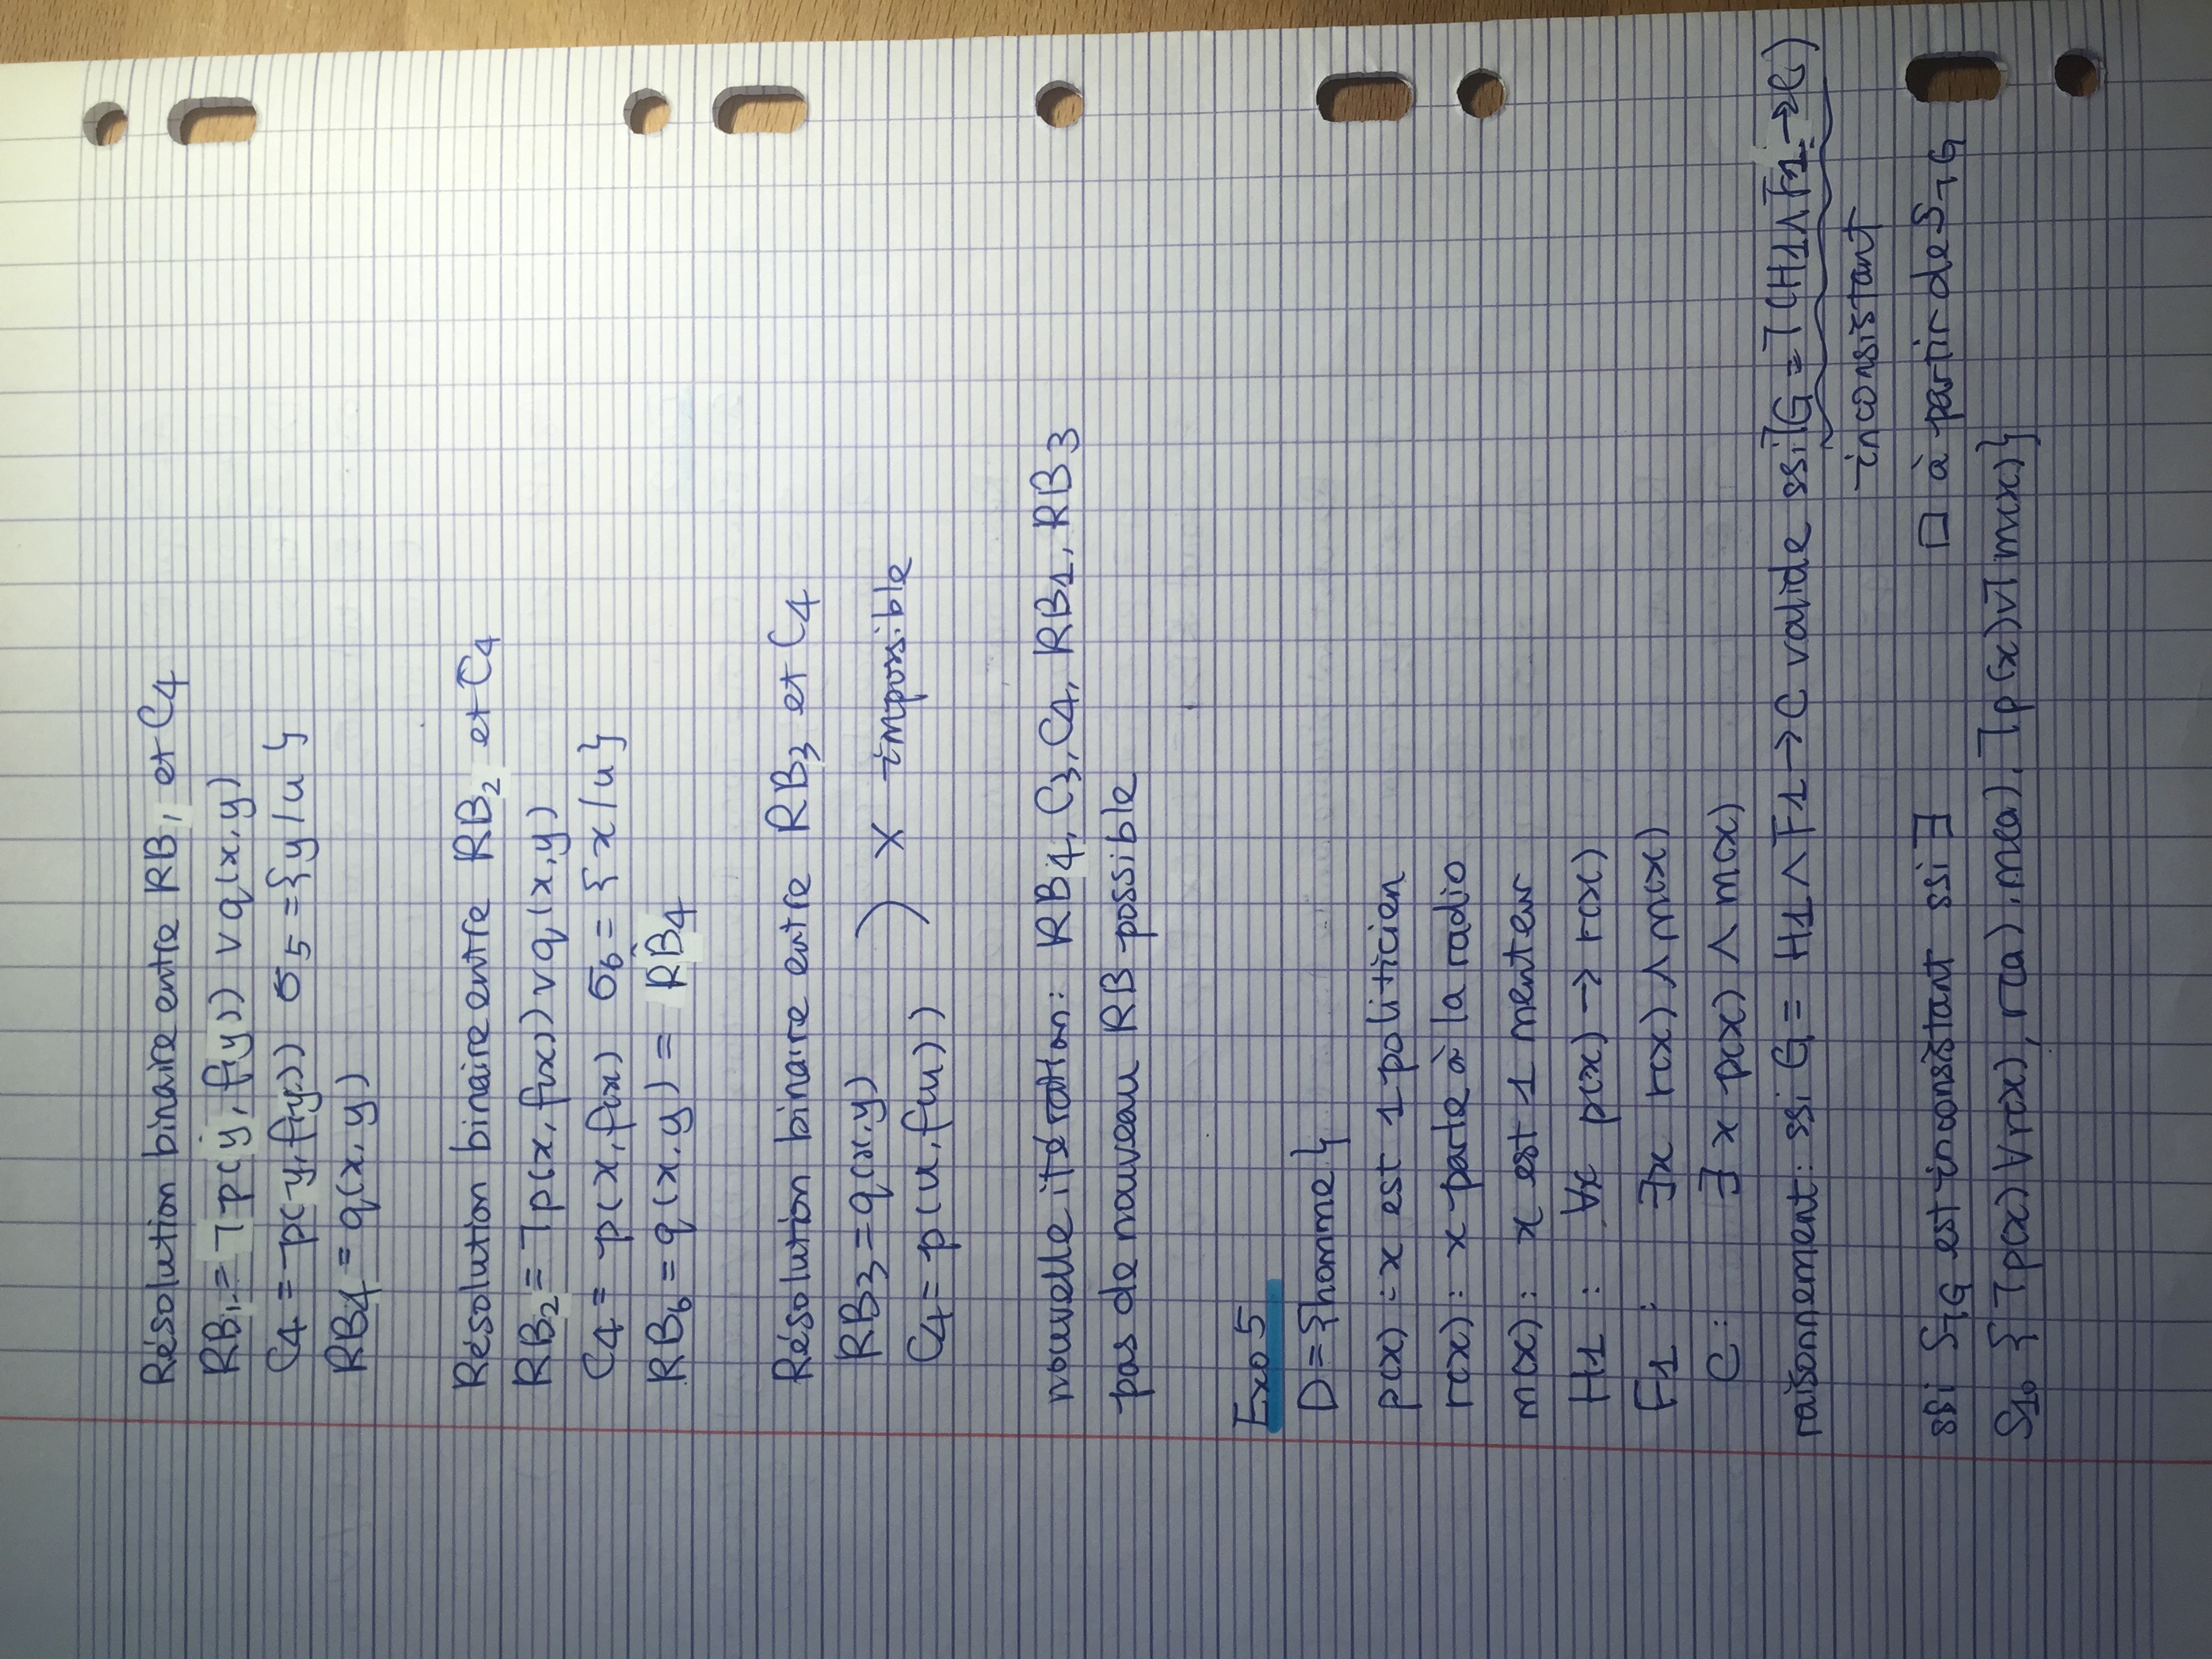 Résolution binaire entre RB₁ et C4
RB₁ = ¬p(y, f(y)) ∨ q(x,y)
C4 = p(y, f(y)) σ5 = {y/u}
RB4 = q(x,y)
Résolution binaire entre RB₂ et C4
RB₂ = ¬p(x, f(x)) ∨ q(x,y)
C4 = p(x, f(x) σ6 = {x/u}
RB6 = q(x,y) = RB4
Résolution binaire entre RB3 et C4
RB3 = q(x,y)
C4 = p(u, f(u)) ) X impossible
nouvelle itération: RB4, C3, C4, RB1, RB3
pas de nouveau RB possible
Exo 5
D = {homme}
p(x) : x est 1 politicien
r(x) : x parle à la radio
m(x) : x est 1 menteur
H1 : ∀x p(x) → r(x)
F1 : ∃x r(x) ∧ m(x)
C : ∃x p(x) ∧ m(x)
raisonnement: ssi G = H1 ∧ F1 → C valide ssi ¬G = ¬(H1 ∧ F1 → C)
inconsistant
ssi S¬G est inconsistant ssi ∃ □ à partir de S¬G
{¬p(x) ∨ r(x), r(a), m(a), ¬p(x) ∨ ¬m(x)}